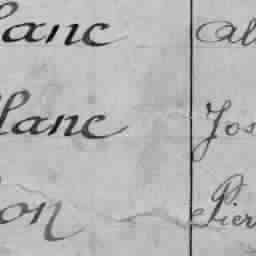 lanc Al
lanc Jos
on Pier